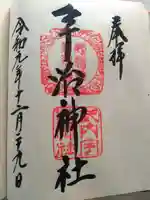 奉拝
宇治神社
令和元年十二月二十九日